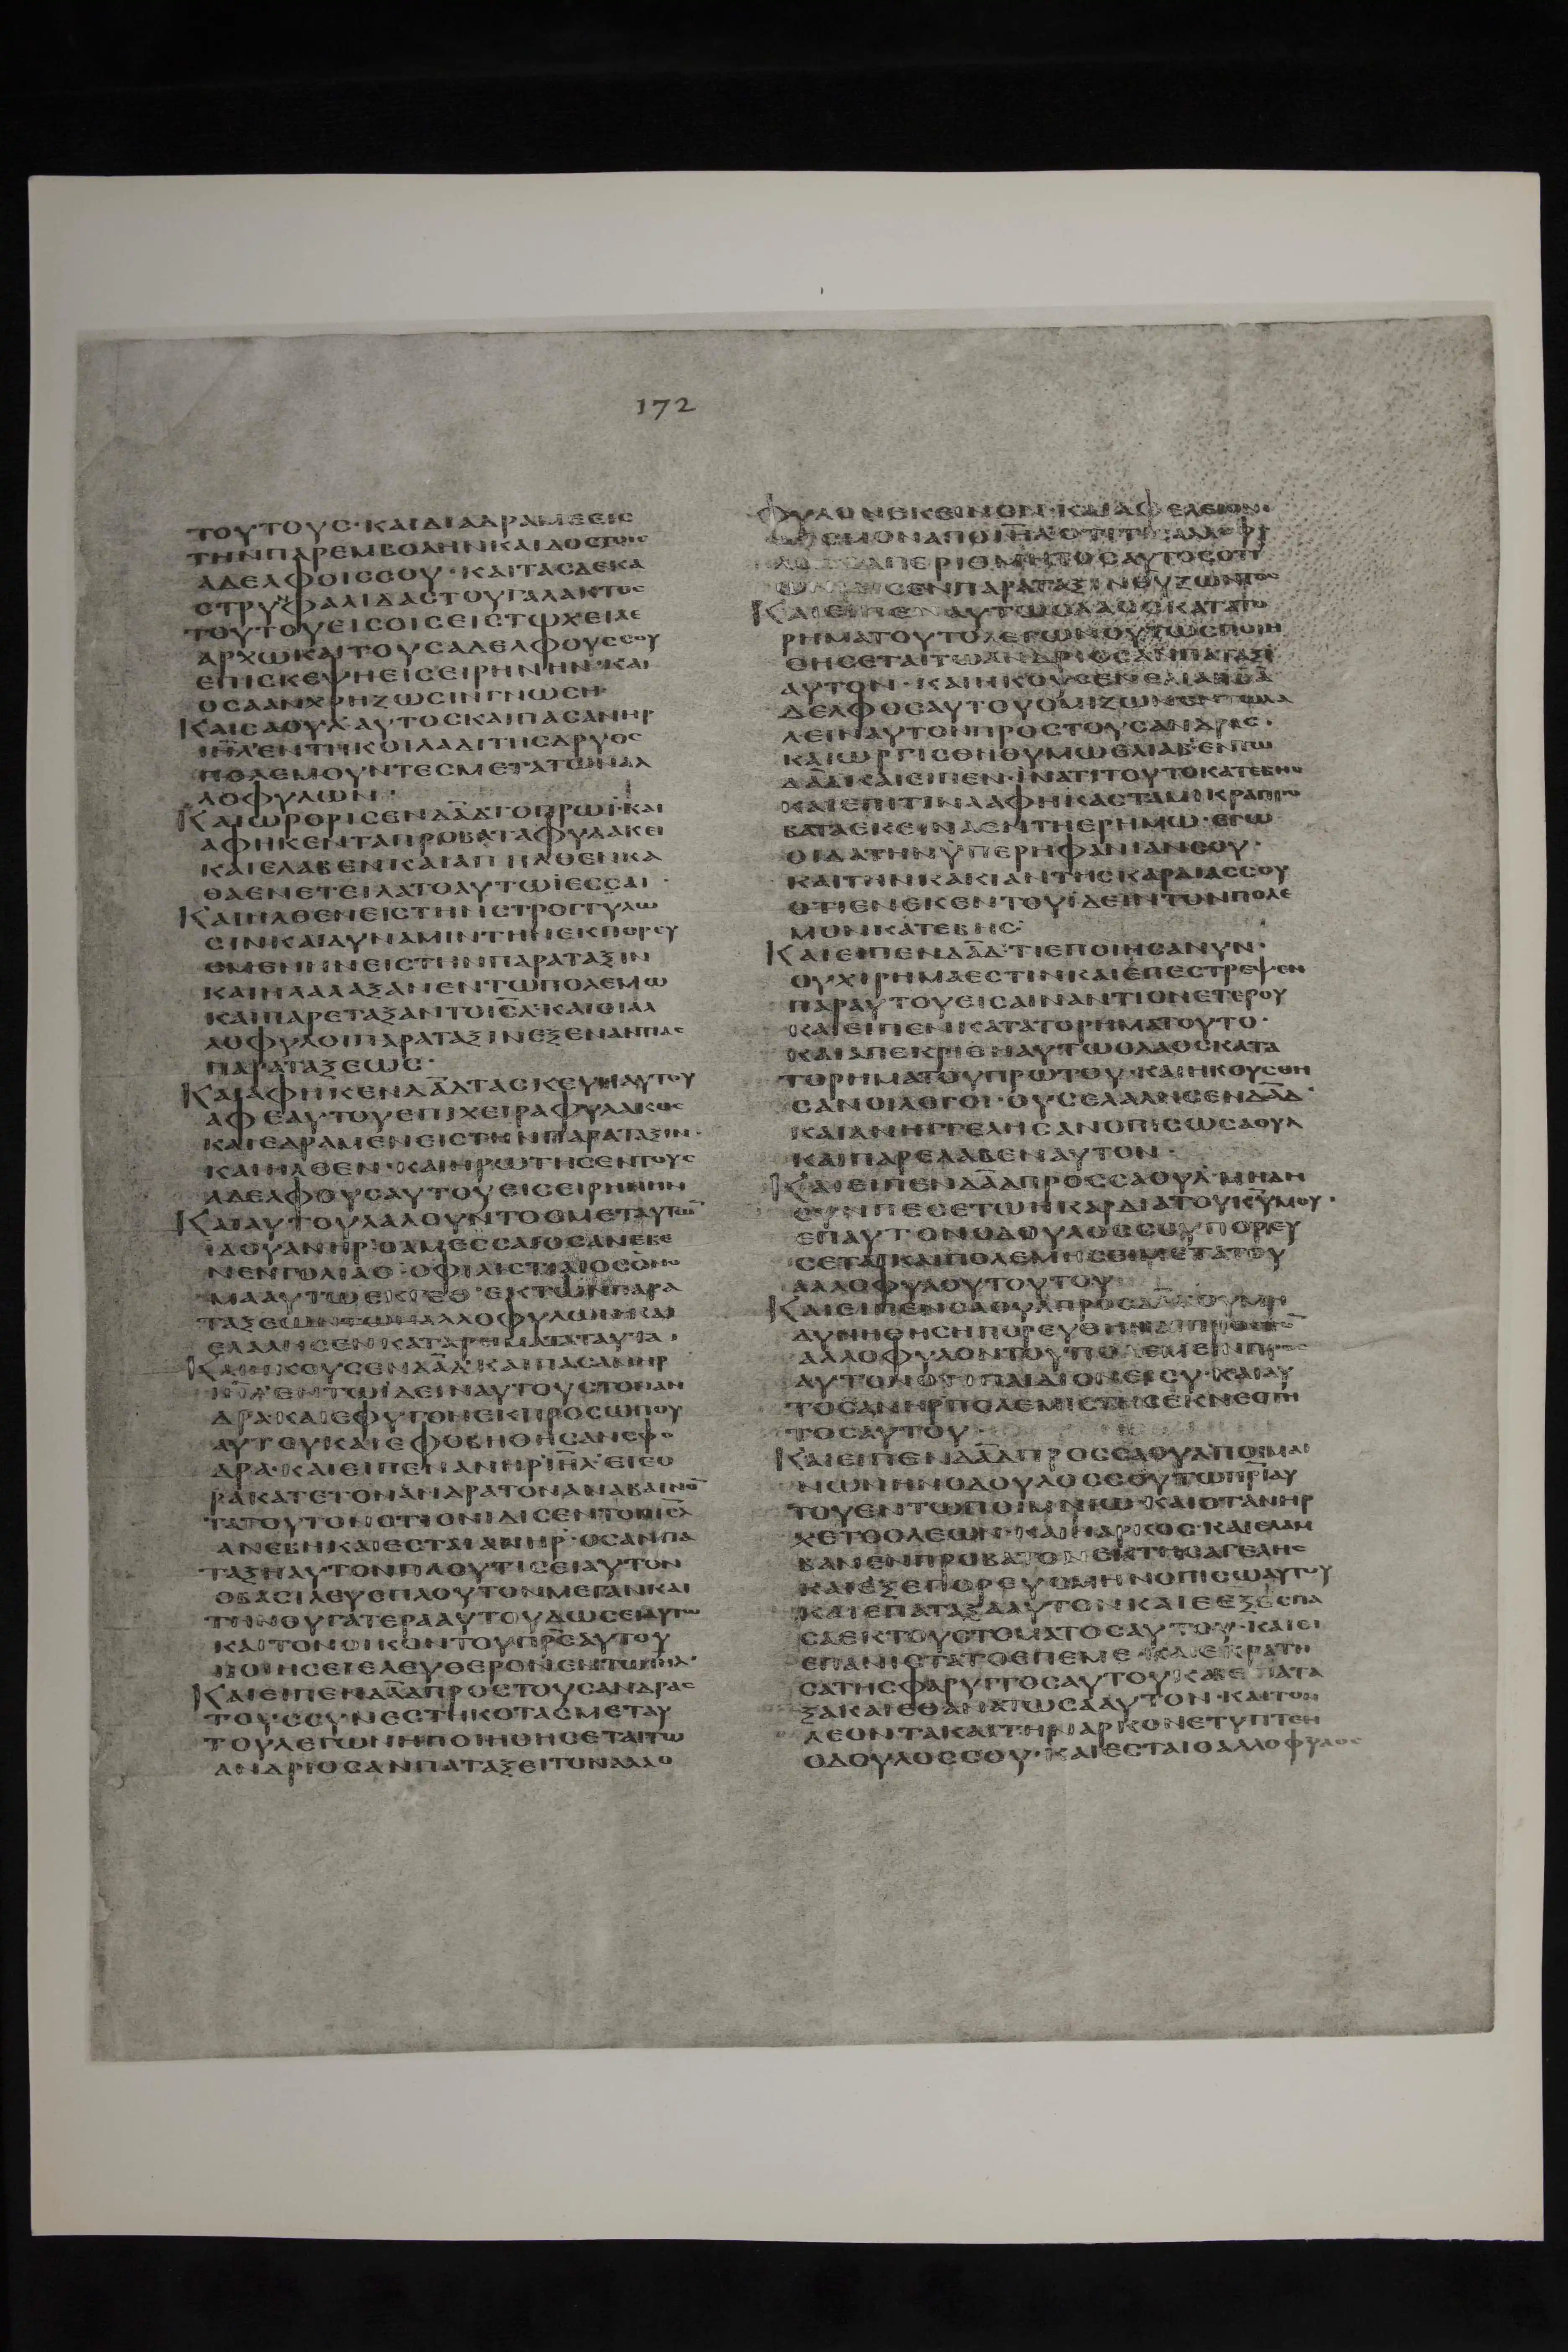 172
ΤΟΥΤΟΥϹ·ΚΑΙΔΙΑΔΡΑΜΕΕΙϹ
ΤΗΝΠΑΡΕΜΒΟΛΗΝΚΑΙΔΟϹΤΟΙϹ
ΑΔΕΛΦΟΙϹϹΟΥ·ΚΑΙΤΑϹΔΕΚΑ
ϹΤΡΥΦΑΛΙΔΑϹΤΟΥΓΑΛΑΚΤΟϹ
ΤΟΥΤΟΥΕΙϹΟΙϹΕΙϹΤΩΧΕΙΛΙ
ΑΡΧΩΚΑΙΤΟΥϹΑΔΕΛΦΟΥϹϹΟΥ
ΕΠΙϹΚΕΨΗΕΙϹΕΙΡΗΝΗΝ·ΚΑΙ
ΟϹΑΑΝΧΡΗΖΩϹΙΝΓΝΩϹΗ·
ΚΑΙϹΑΟΥΛΑΥΤΟϹΚΑΙΠΑϹΑΝΗΡ
ΙΗΛΕΝΤΗΚΟΙΛΑΔΙΤΗϹΔΡΥΟϹ
ΠΟΛΕΜΟΥΝΤΕϹΜΕΤΑΤΩΝΑΛ
ΛΟΦΥΛΩΝ·
ΚΑΙΩΡΘΡΙϹΕΝΔΑΔΤΟΠΡΩΙ·ΚΑΙ
ΑΦΗΚΕΝΤΑΠΡΟΒΑΤΑΦΥΛΑΚΕΙ
ΚΑΙΕΛΑΒΕΝΚΑΙΑΠΗΛΘΕΝΚΑ
ΘΑΕΝΕΤΕΙΛΑΤΟΑΥΤΩΙΕϹϹΑΙ·
ΚΑΙΗΛΘΕΝΕΙϹΤΗΝϹΤΡΟΓΓΥΛΩ
ϹΙΝΚΑΙΔΥΝΑΜΙΝΤΗΝΕΚΠΟΡΕΥ
ΟΜΕΝΗΝΕΙϹΤΗΝΠΑΡΑΤΑΞΙΝ
ΚΑΙΗΛΑΛΑΞΑΝΕΝΤΩΠΟΛΕΜΩ
ΚΑΙΠΑΡΕΤΑΞΑΝΤΟΙϹΛ·ΚΑΙΟΙΑΛ
ΛΟΦΥΛΟΙΠΑΡΑΤΑΞΙΝΕΞΕΝΑΝΤΙΑϹ
ΠΑΡΑΤΑΞΕΩϹ·
ΚΑΙΑΦΗΚΕΝΔΑΔΤΑϹΚΕΥΗΑΥΤΟΥ
ΑΦΕΑΥΤΟΥΕΠΙΧΕΙΡΑΦΥΛΑΚΟϹ
ΚΑΙΕΔΡΑΜΕΝΕΙϹΤΗΝΠΑΡΑΤΑΞΙΝ·
ΚΑΙΗΛΘΕΝ·ΚΑΙΗΡΩΤΗϹΕΝΤΟΥϹ
ΑΔΕΛΦΟΥϹΑΥΤΟΥΕΙϹΕΙΡΗΝΗΝ
ΚΑΙΑΥΤΟΥΛΑΛΟΥΝΤΟϹΜΕΤΑΥΤΩ̅
ΙΔΟΥΑΝΗΡΟΑΜΕϹϹΑΙΟϹΑΝΕΒΕ
ΝΕΝΓΟΛΙΑΘ·ΟΦΙΛΙϹΤΙΑΙΟϹΟΝΟ
ΜΑΑΥΤΩΕΚΓΕΘ·ΕΚΤΩΝΠΑΡΑ
ΤΑΞΕΩΝΤΩΝΑΛΛΟΦΥΛΩΝΚΑΙ
ΕΛΑΛΗϹΕΝΚΑΤΑΤΑΡΗΜΑΤΑΤΑΥΤΑ·
ΚΑΙΗΚΟΥϹΕΝΔΑΔ·ΚΑΙΠΑϹΑΝΗΡ
ΙΗΛ·ΕΝΤΩΙΔΕΙΝΑΥΤΟΥϹΤΟΝΑΝ
ΔΡΑ·ΚΑΙΕΦΥΓΟΝΕΚΠΡΟϹΩΠΟΥ
ΑΥΤΟΥΚΑΙΕΦΟΒΗΘΗϹΑΝϹΦΟ
ΔΡΑ·ΚΑΙΕΙΠΕΝΑΝΗΡΙΗΛ·ΕΙΕΟ
ΡΑΚΑΤΕΤΟΝΑΝΔΡΑΤΟΝΑΝΑΒΑΙΝΟ̅
ΤΑΤΟΥΤΟΝΟΤΙΟΝΙΔΙϹΕΝΤΟΝΙϹΛ
ΑΝΕΒΗΚΑΙΕϹΤΑΙΑΝΗΡ·ΟϹΑΝΠΑ
ΤΑΞΗΑΥΤΟΝΠΛΟΥΤΙϹΕΙΑΥΤΟΝ
ΟΒΑϹΙΛΕΥϹΠΛΟΥΤΟΝΜΕΓΑΝΚΑΙ
ΤΗΝΘΥΓΑΤΕΡΑΑΥΤΟΥΔΩϹΕΙΑΥΤΩ
ΚΑΙΤΟΝΟΙΚΟΝΤΟΥΠΡϹΑΥΤΟΥ
ΠΟΙΗϹΕΙΕΛΕΥΘΕΡΟΝΕΝΤΩΙΗΛ·
ΚΑΙΕΙΠΕΝΔΑΔΠΡΟϹΤΟΥϹΑΝΔΡΑϹ
ΤΟΥϹϹΥΝΕϹΤΗΚΟΤΑϹΜΕΤΑΥ
ΤΟΥΛΕΓΩΝΗΠΟΙΗΘΗϹΕΤΑΙΤΩ
ΑΝΔΡΙΟϹΑΝΠΑΤΑΞΕΙΤΟΝΑΛΛΟ
ΦΥΛΟΝΕΚΕΙΝΟΝ·ΚΑΙΑΦΕΛΕΙΟΝΙ
ΔΙϹΜΟΝΑΠΟΙΗΛ·ΟΤΙΤΙϹΑΛΛΟΦΥ
ΛΟϹΟΑΠΕΡΙΤΜΗΤΟϹΑΥΤΟϹΟΤΙ
ΩΝΙΔΙϹΕΝΠΑΡΑΤΑΞΙΝΘΥΖΩΝΤΟϹ
ΚΑΙΕΙΠΕΝΑΥΤΩΟΛΑΟϹΚΑΤΑΤΟ
ΡΗΜΑΤΟΥΤΟΛΕΓΩΝΟΥΤΩϹΠΟΙΗ
ΘΗϹΕΤΑΙΤΩΑΝΔΡΙΟϹΑΝΠΑΤΑΞΕΙ
ΑΥΤΟΝ·ΚΑΙΗΚΟΥϹΕΝΕΛΙΑΒΑ
ΔΕΛΦΟϹΑΥΤΟΥΟΜΙΖΩΝΕΝΤΩΛΑ
ΛΕΙΝΑΥΤΟΝΠΡΟϹΤΟΥϹΑΝΔΡΑϹ·
ΚΑΙΩΡΓΙϹΘΗΘΥΜΩΕΛΙΑΒ·ΕΝΤΩ
ΔΑΔΚΑΙΕΙΠΕΝ·ΙΝΑΤΙΤΟΥΤΟΚΑΤΕΒΗϹ
ΚΑΙΕΠΙΤΙΝΑΑΦΗΚΑϹΤΑΜΙΚΡΑΠΡΟ
ΒΑΤΑΕΚΕΙΝΑΕΝΤΗΕΡΗΜΩ·ΕΓΩ
ΟΙΔΑΤΗΝΥΠΕΡΗΦΑΝΙΑΝϹΟΥ·
ΚΑΙΤΗΝΚΑΚΙΑΝΤΗϹΚΑΡΔΙΑϹϹΟΥ
ΟΤΙΕΝΕΚΕΝΤΟΥΙΔΕΙΝΤΟΝΠΟΛΕ
ΜΟΝΚΑΤΕΒΗϹ·
ΚΑΙΕΙΠΕΝΔΑΔ·ΤΙΕΠΟΙΗϹΑΝΥΝ·
ΟΥΧΙΡΗΜΑΕϹΤΙΝΚΑΙΕΠΕϹΤΡΕΨΕΝ
ΠΑΡΑΥΤΟΥΕΙϹΑΙΝΑΝΤΙΟΝΕΤΕΡΟΥ
ΚΑΙΕΙΠΕΝΚΑΤΑΤΟΡΗΜΑΤΟΥΤΟ·
ΚΑΙΑΠΕΚΡΙΘΗΑΥΤΩΟΛΑΟϹΚΑΤΑ
ΤΟΡΗΜΑΤΟΥΠΡΩΤΟΥ·ΚΑΙΗΚΟΥϹΘΗ
ϹΑΝΟΙΛΟΓΟΙ·ΟΥϹΕΛΑΛΗϹΕΝΔΑΔ·
ΚΑΙΑΝΗΓΓΕΛΗϹΑΝΟΠΙϹΩϹΑΟΥΛ
ΚΑΙΠΑΡΕΛΑΒΕΝΑΥΤΟΝ·
ΚΑΙΕΙΠΕΝΔΑΔΠΡΟϹϹΑΟΥΛ·ΜΗΔΗ
ϹΥΝΠΕϹΕΤΩΗΚΑΡΔΙΑΤΟΥΚΥΜΟΥ·
ΕΠΑΥΤΟΝΟΔΟΥΛΟϹϹΟΥΠΟΡΕΥ
ϹΕΤΑΙΚΑΙΠΟΛΕΜΗϹΕΙΜΕΤΑΤΟΥ
ΑΛΛΟΦΥΛΟΥΤΟΥΤΟΥ
ΚΑΙΕΙΠΕΝϹΑΟΥΛΠΡΟϹΔΑΔ·ΟΥΜΗ
ΔΥΝΗΘΗϹΗΠΟΡΕΥΘΗΝΑΙΠΡΟϹΤΟ̅
ΑΛΛΟΦΥΛΟΝΤΟΥΠΟΛΕΜΕΙΝΠΡΟϹ
ΑΥΤΟΝΟΤΙΠΑΙΔΙΟΝΕΙϹΥ·ΚΑΙΑΥ
ΤΟϹΑΝΗΡΠΟΛΕΜΙϹΤΗϹΕΚΝΕΟΤΗ
ΤΟϹΑΥΤΟΥ·
ΚΑΙΕΙΠΕΝΔΑΔΠΡΟϹϹΑΟΥΛ·ΠΟΙΜΑΙ
ΝΩΝΗΝΟΔΟΥΛΟϹϹΟΥΤΩΠΡΙΑΥ
ΤΟΥΕΝΤΩΠΟΙΜΝΙΩ·ΚΑΙΟΤΑΝΗΡ
ΧΕΤΟΟΛΕΩΝ·ΚΑΙΗΑΡΚΟϹ·ΚΑΙΕΛΑΜ
ΒΑΝΕΝΠΡΟΒΑΤΟΝΕΚΤΗϹΑΓΕΛΗϹ
ΚΑΙΕΞΕΠΟΡΕΥΟΜΗΝΟΠΙϹΩΑΥΤΟΥ
ΚΑΙΕΠΑΤΑΞΑΑΥΤΟΝΚΑΙΕΞΕϹΠΑ
ϹΑΕΚΤΟΥϹΤΟΜΑΤΟϹΑΥΤΟΥ·ΚΑΙΕΙ
ΕΠΑΝΙϹΤΑΤΟΕΠΕΜΕ·ΚΑΙΕΚΡΑΤΗ
ϹΑΤΗϹΦΑΡΥΓΓΟϹΑΥΤΟΥΚΑΙΕΠΑΤΑ
ΞΑΚΑΙΕΘΑΝΑΤΩϹΑΑΥΤΟΝ·ΚΑΙΤΟΝ
ΛΕΟΝΤΑΚΑΙΤΗΝΑΡΚΟΝΕΤΥΠΤΕΝ
ΟΔΟΥΛΟϹϹΟΥ·ΚΑΙΕϹΤΑΙΟΑΛΛΟΦΥΛΟϹ